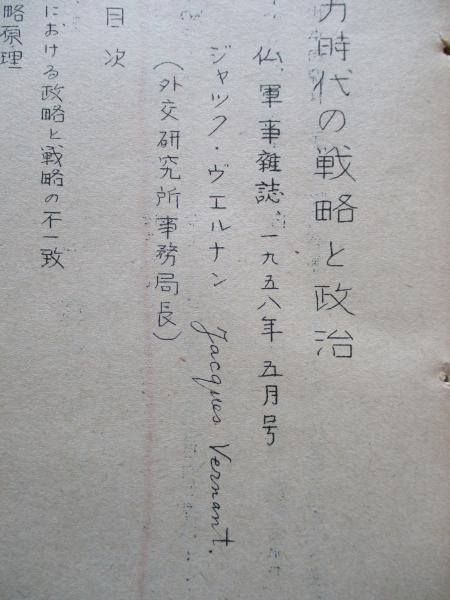 力時代の戦略と政治
仏、軍事雑誌、一九五八年五月号
ジャック・ヴエルナン Jacques Vernant.
(外交研究所事務局長)
目次
における政略と戦略の不一致
略原理